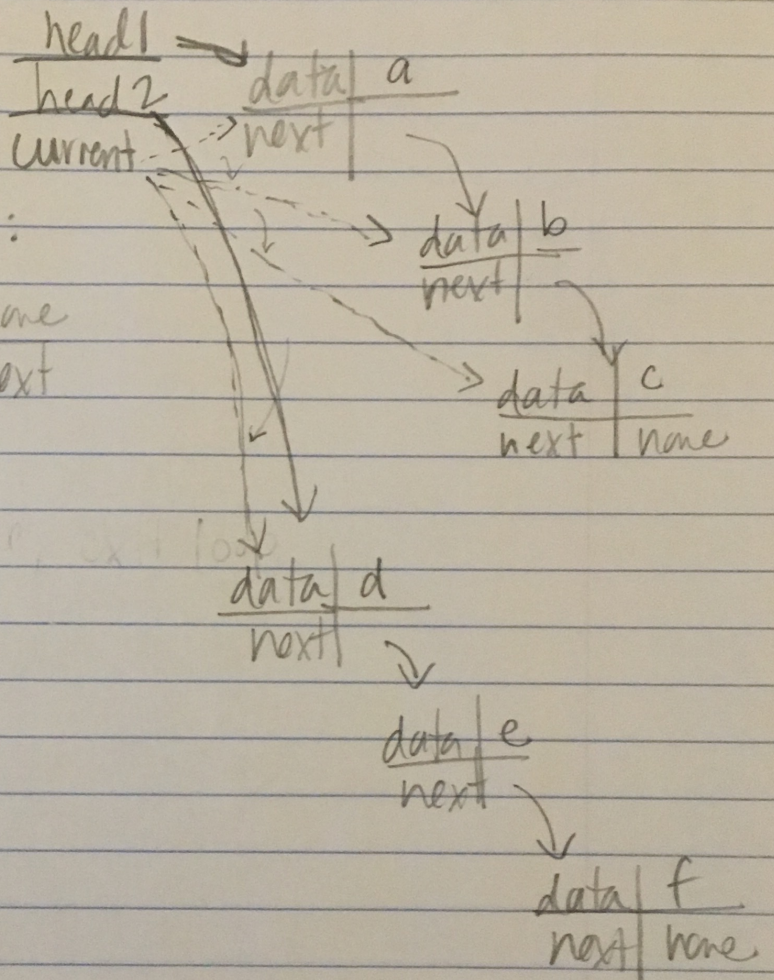 head1
head2
current
data a
next
data b
next
:
data c
next none
data d
next
data e
next
data f
next none